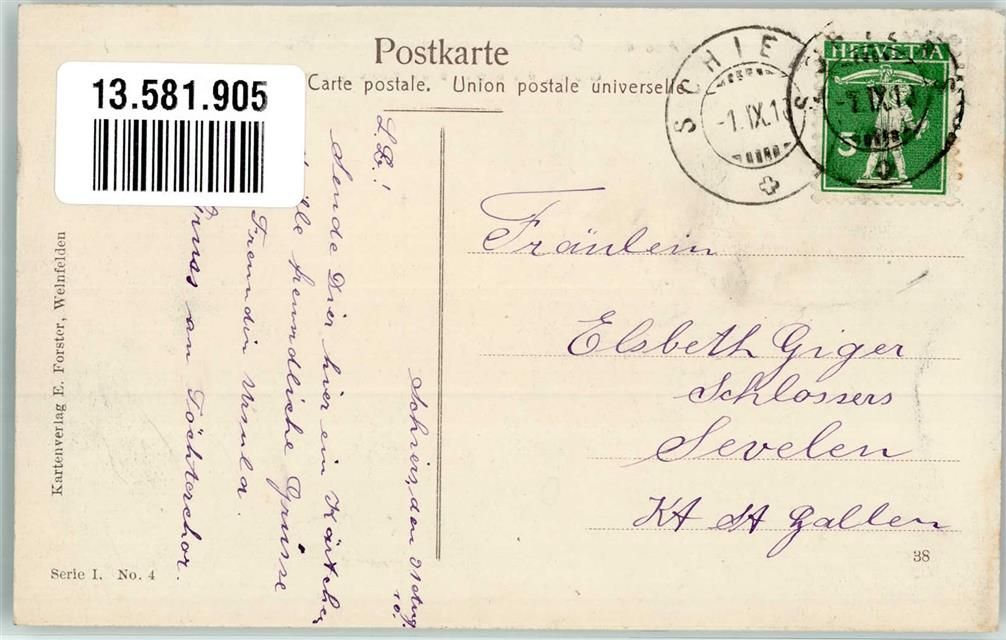 Postkarte
Carte postale. Union postale universelle
13.581.905
SCHIE
-1.IX.1
HELVETIA
5
Schiers, den 31 Aug.
10.
L. B.!
Sende Dir hier ein Kärtchen
freundliche Grüsse
Freundin Ursula.
Gruss an Töchterchor.
Fräulein
Elsbeth Giger
Schlossers
Sevelen
Kt St Gallen
38
Kartenverlag E. Forster, Weinfelden
Serie I. No. 4